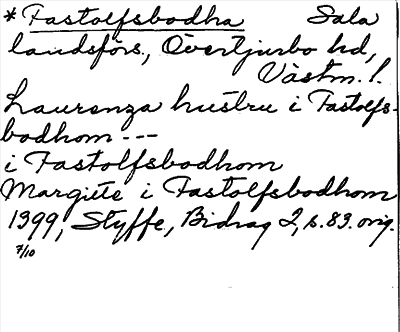 * Fastolfsbodha Sala
landsförs., Övertjurbo hd,
Västm. l.
Laurenza hustru i Fastolfs-
bodhom ---
i Fastolfsbodhom
Margitte i Fastolfsbodhom
1399, Styffe, Bidrag 2, s. 83. orig.
7/10